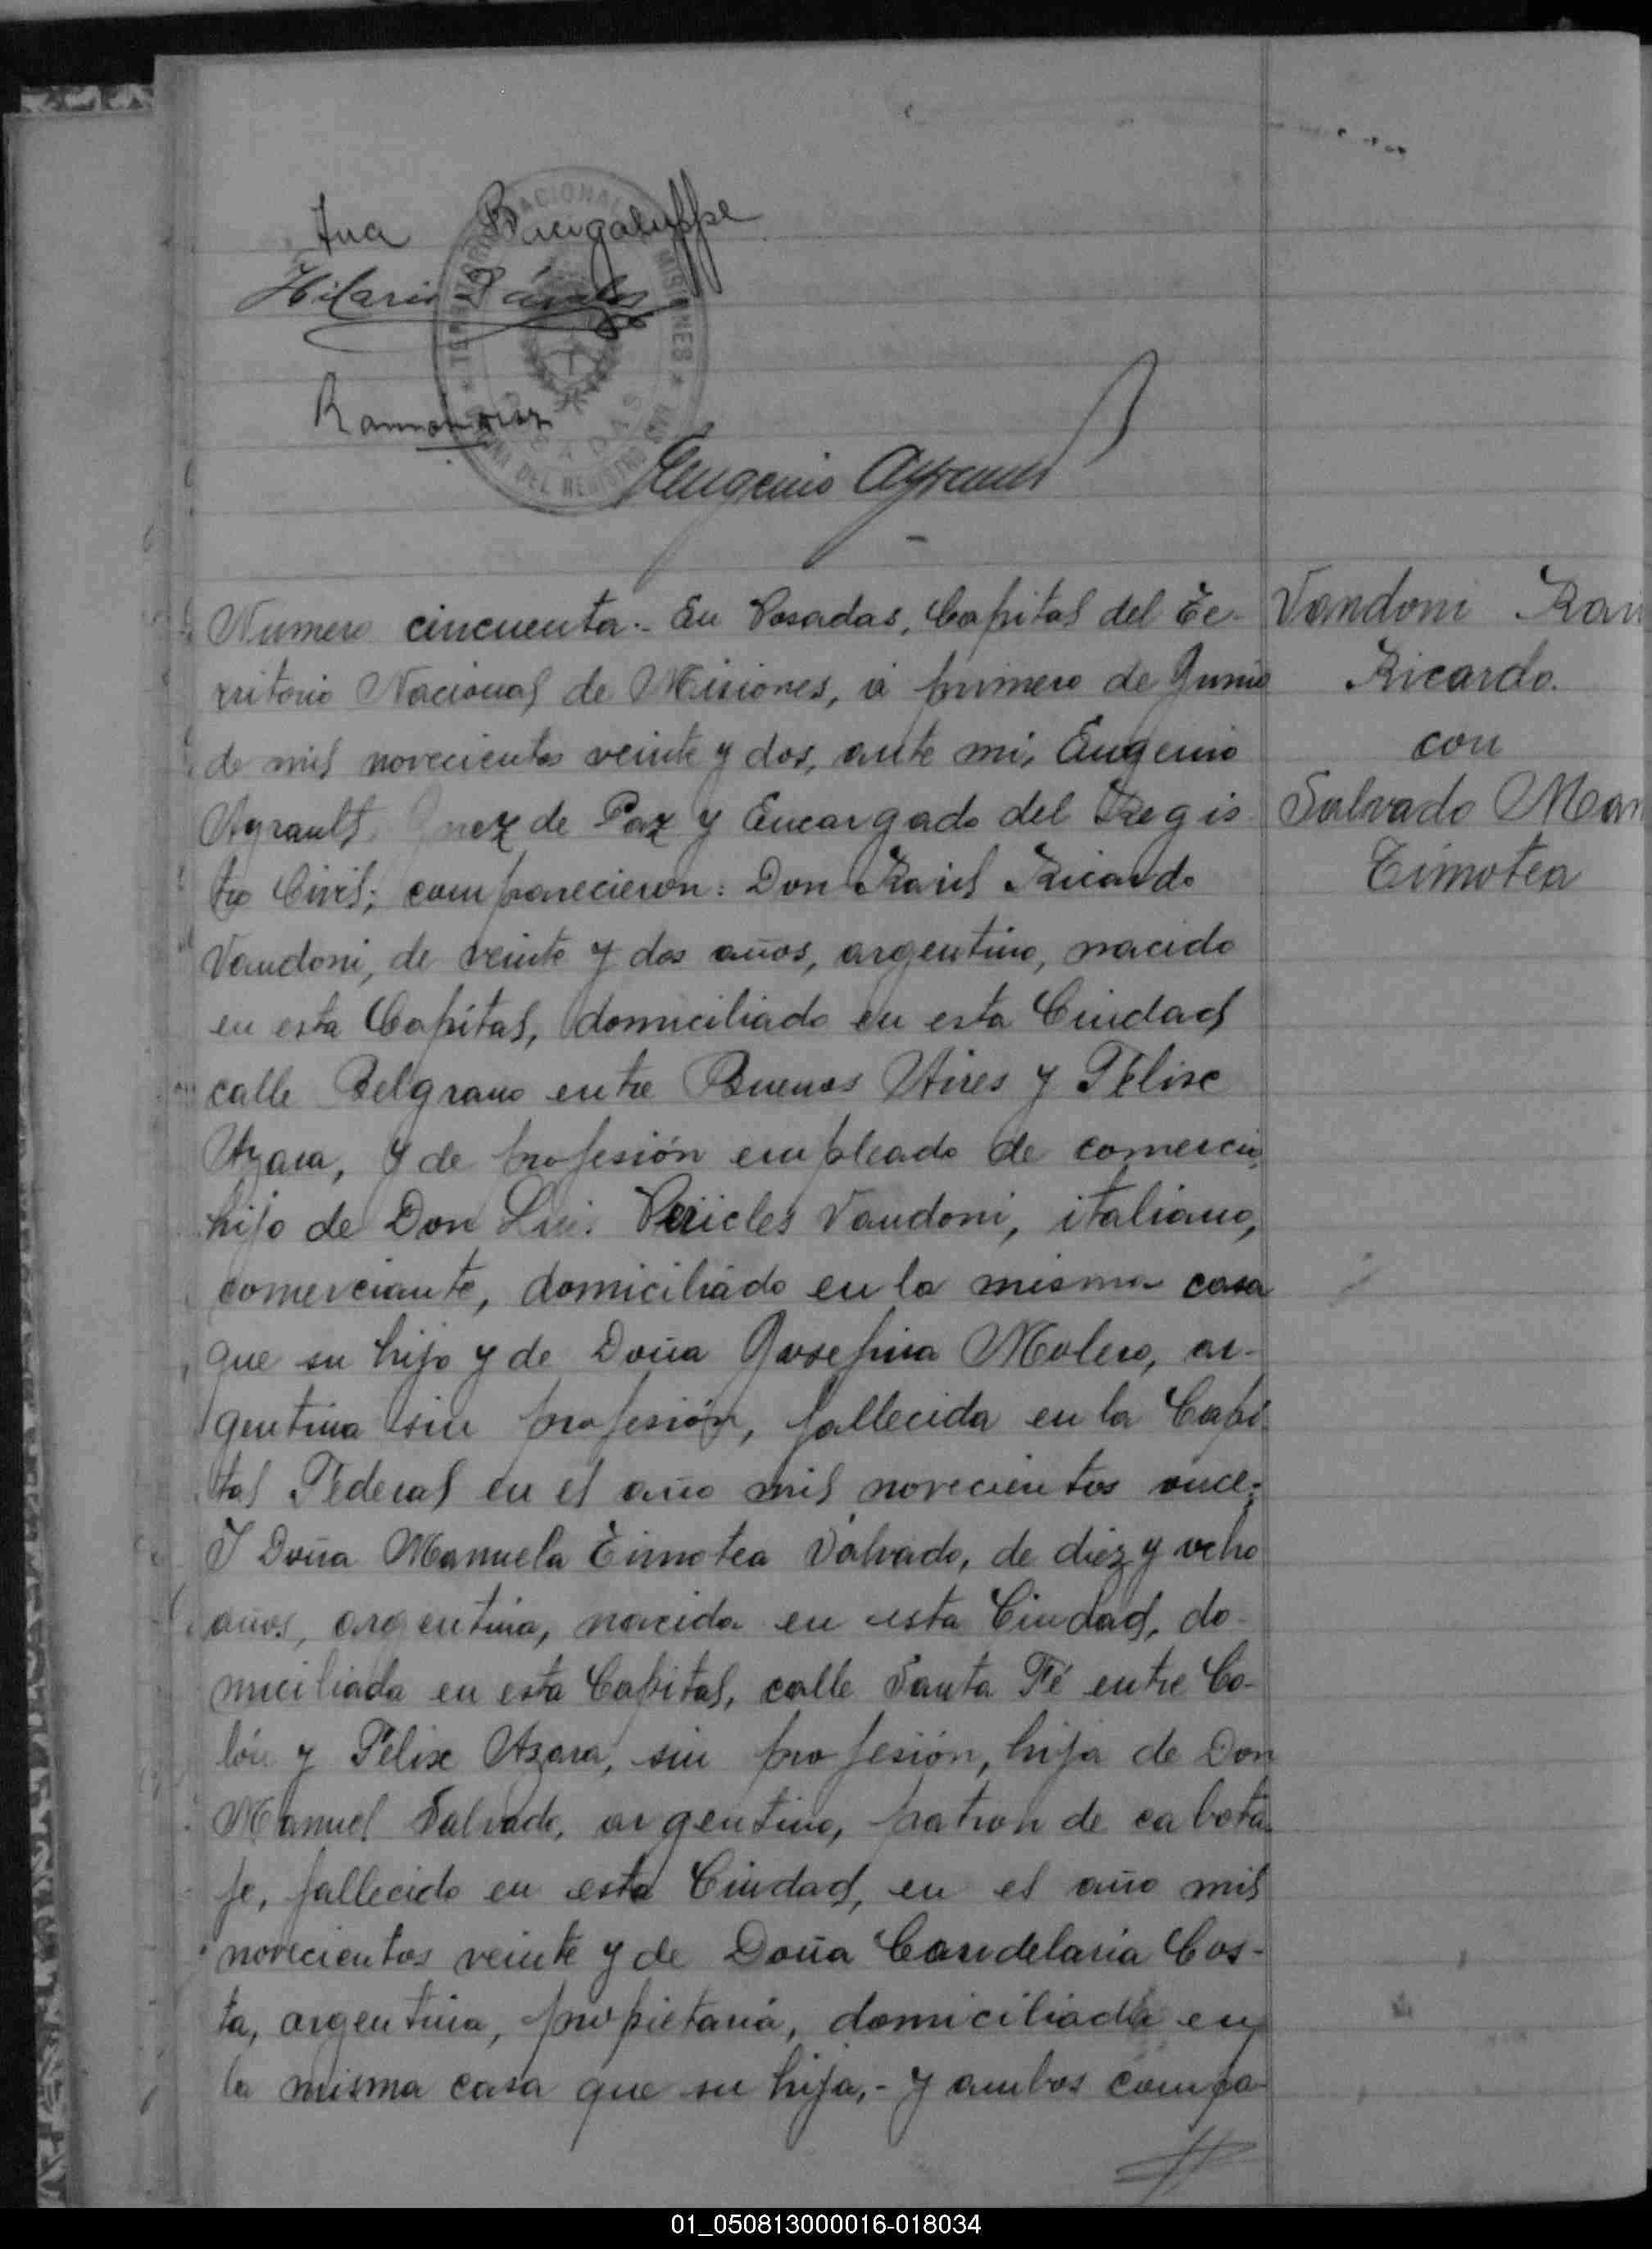 Ana Bacigaluppe
Hilario Dávalos
Ramon
Eugenio Ayrault
TERRITORIO NACIONAL MISIONES
POSADAS
OFICINA DEL REGISTRO CIVIL
Numero cincuenta.- En Posadas, Capital del Te-
rritorio Nacional de Misiones, á primero de Junio
de mil novecientos veinte y dos, ante mi, Eugenio
Ayrault, Juez de Paz y Encargado del Regis-
tro Civil; comparecieron: Don Raúl Ricardo
Vandoni, de veinte y dos años, argentino, nacido
en esta Capital, domiciliado en esta Ciudad
calle Belgrano entre Buenos Aires y Félix
Azara, y de profesión empleado de comercio,
hijo de Don Luis Pericles Vandoni, italiano,
comerciante, domiciliado en la misma casa
que su hijo y de Doña Josefina Molero, ar-
gentina sin profesión, fallecida en la Capi-
tal Federal en el año mil novecientos once;
Y Doña Manuela Timotea Salvado, de diez y ocho
años, argentina, nacida en esta Ciudad, do-
miciliada en esta Capital, calle Santa Fé entre Co-
lón y Félix Azara, sin profesión, hija de Don
Manuel Salvado, argentino, patron de cabota-
je, fallecido en esta Ciudad, en el año mil
novecientos veinte y de Doña Candelaria Cos-
ta, argentina, propietaria, domiciliada en
la misma casa que su hija,- y ambos compa-
Vandoni Rau
Ricardo.
con
Salvado Man
Timotea
01_050813000016-018034